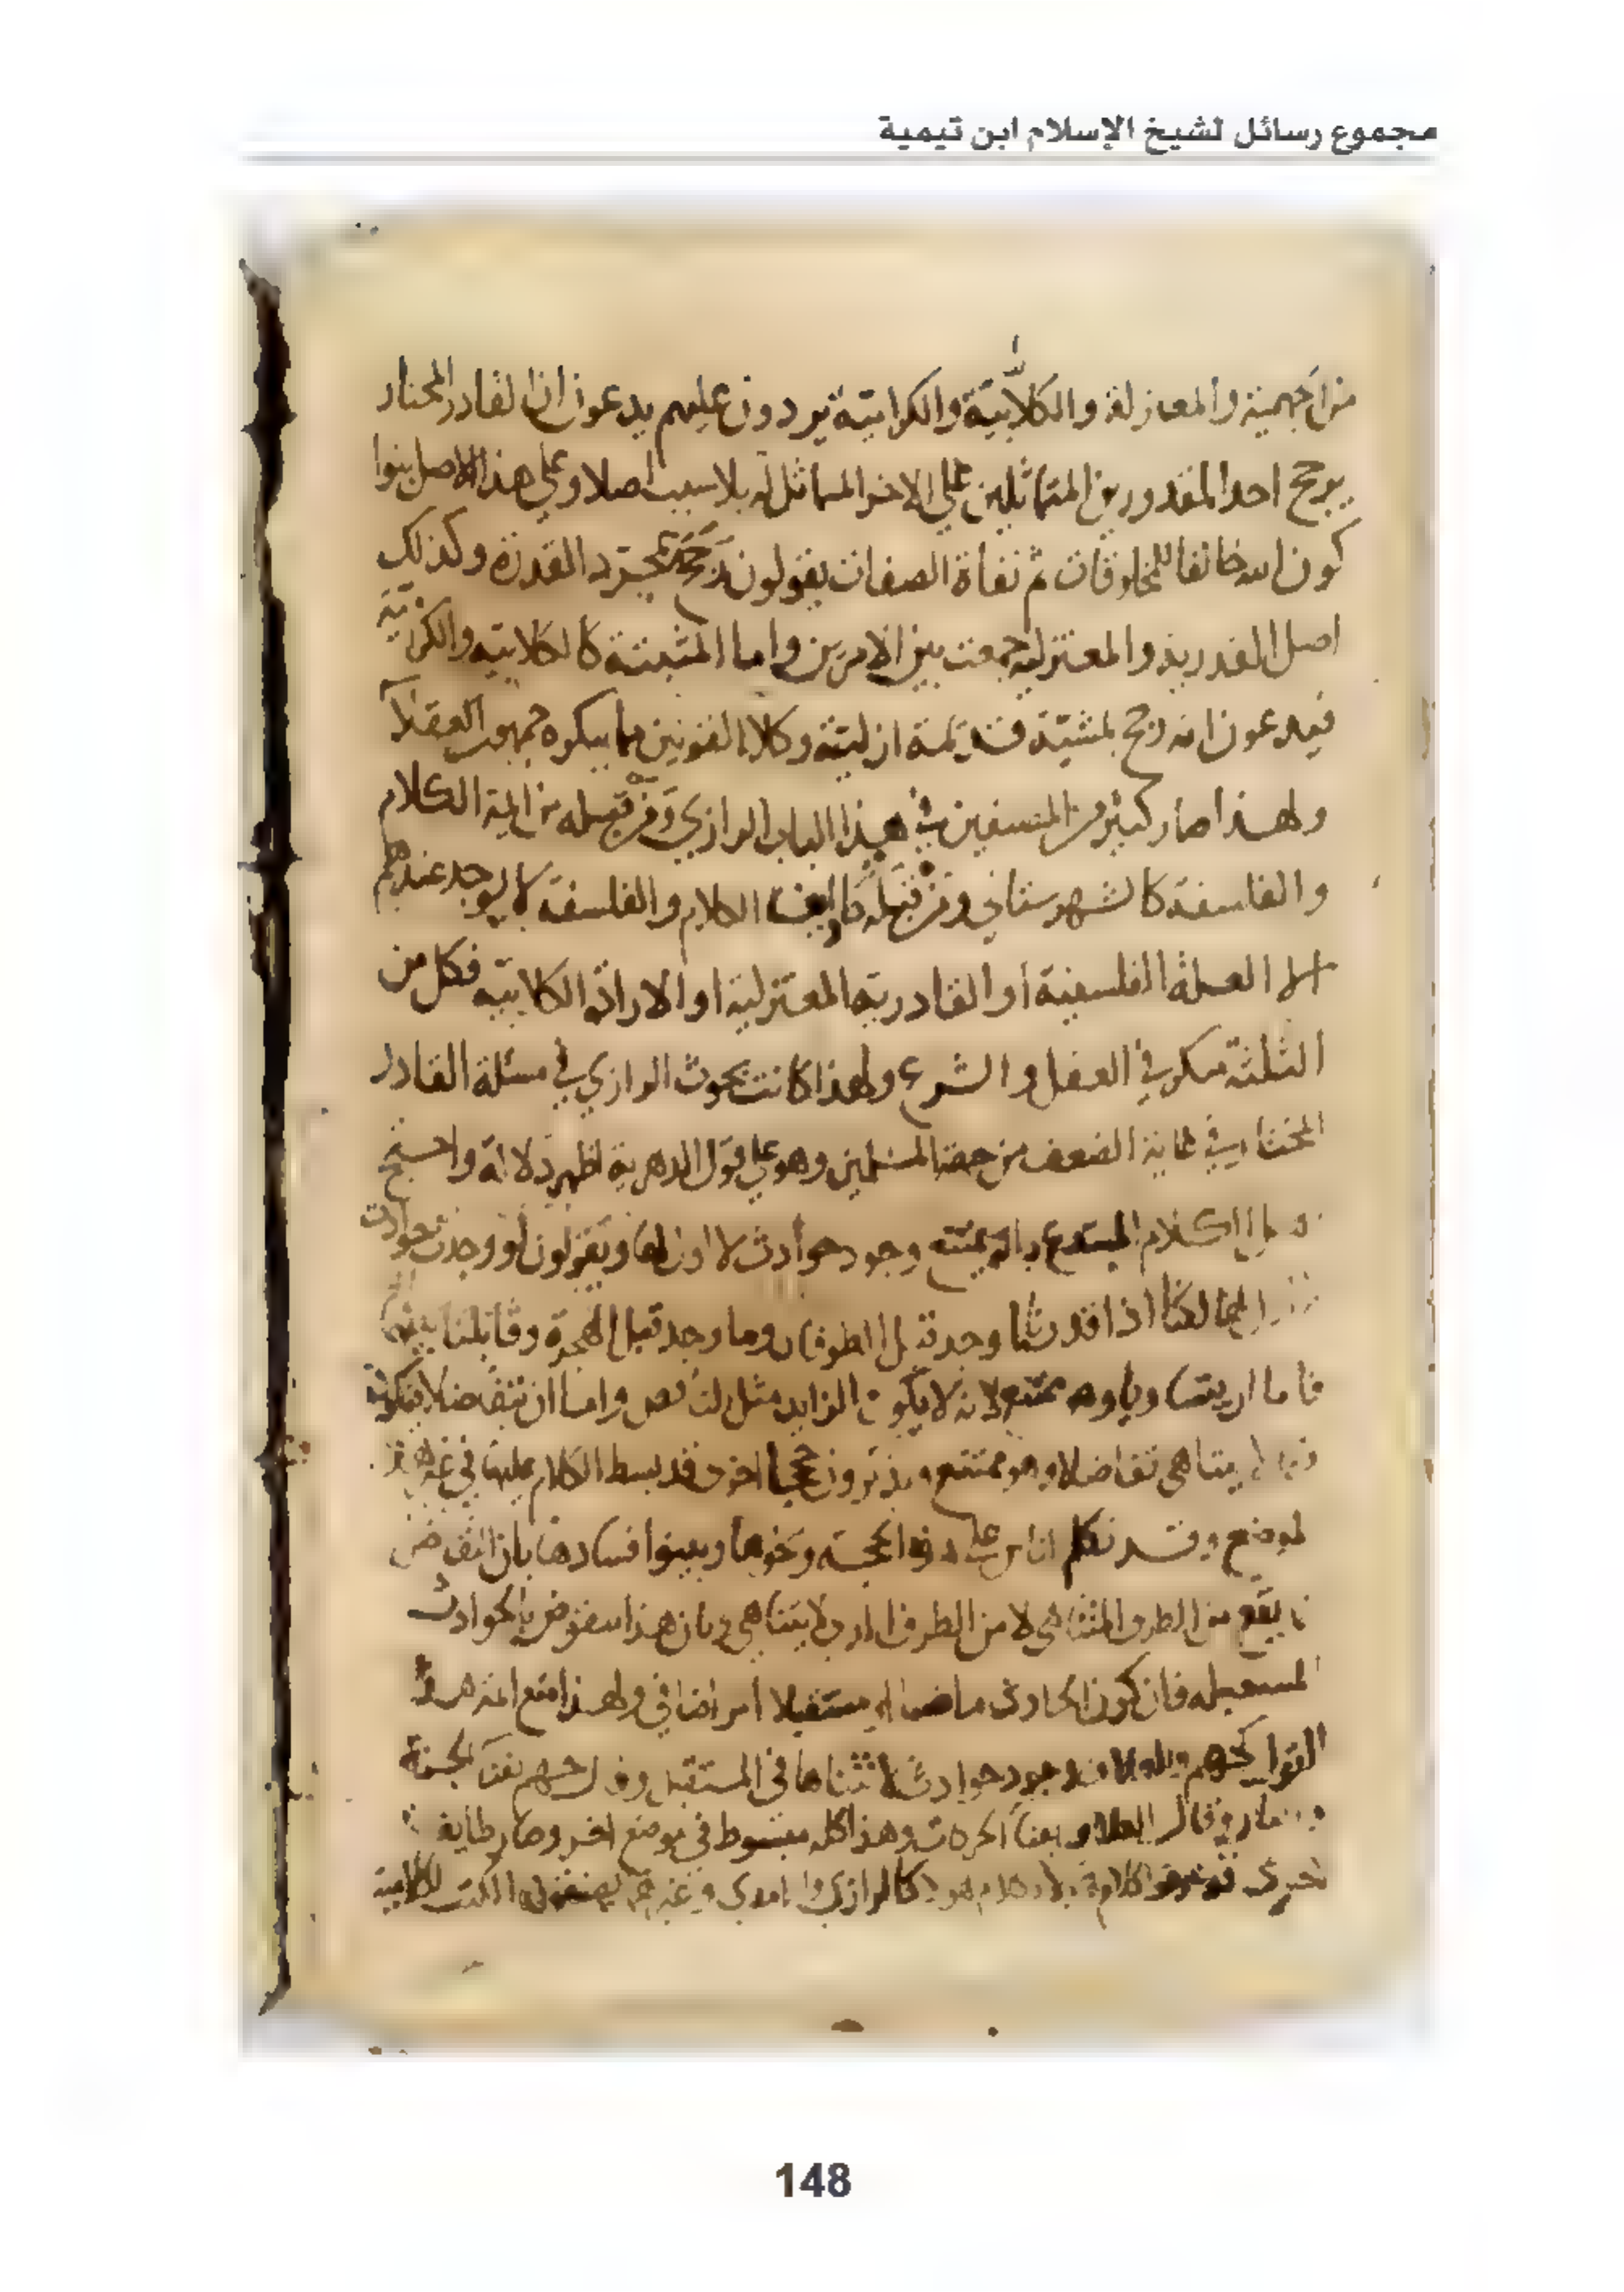 مجموع رسائل لشيخ الإسلام ابن تيمية
من الجهمية والمعتزلة والكلابية والكرامية يردون عليهم يدعون ان القادر المختار
يرجح احد المقدورين المتماثلين على الاخر المماثل له بلا سبب اصلا وعلى هذا الاصل بنوا
كون الله خالقا للمخلوقات ثم نفاة الصفات يقولون رجح بمجرد القدرة وكذلك
اصل القدرية والمعتزلة جمعت بين الامرين واما المثبتة كالكلابية والكرامية
فيدعون انه رجح بمشيئة قديمة ازلية وكلا القولين مما ينكره جمهور العقلا
ولهذا صار كثير من المصنفين في هذا الباب الرازي ومن قبله من ائمة الكلام
والفلسفة كالشهرستاني ومن قبله من الكلام والفلسفة لا يوجد عندهم
الا العلة الفلسفية او القادرية المعتزلية او الارادة الكلابية فكل من
الثلثة منكر في العقل والشرع ولهذا كانت بحوث الرازي في مسئلة القادر
المختار في غاية الضعف من جهة المسلمين وهو على قول الدهرية اظهر دلالة واحتج
الكلام المبتدع بانه يمتنع وجود حوادث لا اول لها ويقولون لو وجدت حوادث
لكنا اذا قدرنا ما وجد قبل الطوفان وما وجد قبل الهجرة وقابلنا بينهما
فاما ان يتساويا وهو ممتنع لانه لا يكون الزايد مثل الناقص واما ان يتفاضلا فيكون
يتناهى تفاضلا وهو ممتنع ويذكرون حججا اخرى قد بسط الكلام عليها في غير هذا
الموضع وقد تكلم الناس على هذه الحجة ونحوها وبينوا فسادها بان التفاضل
يقع من الطرف المتناهي لا من الطرف الذي لا يتناهى وبان هذا منقوض بالحوادث
المستقبلة فان كون الحادث ماضيا او مستقبلا امر اضافي ولهذا منع ائمة هذا
القول كجهم وجود حوادث لا تتناها في المستقبل وقال جهم بفنا الجنة
والنار وقال العلاف بفنا الحركات وهذا كله مبسوط في موضع اخر وصار طايفة
اخرى كالرازي والامدي وغيرهم يصنفون الكتب الكلامية
148